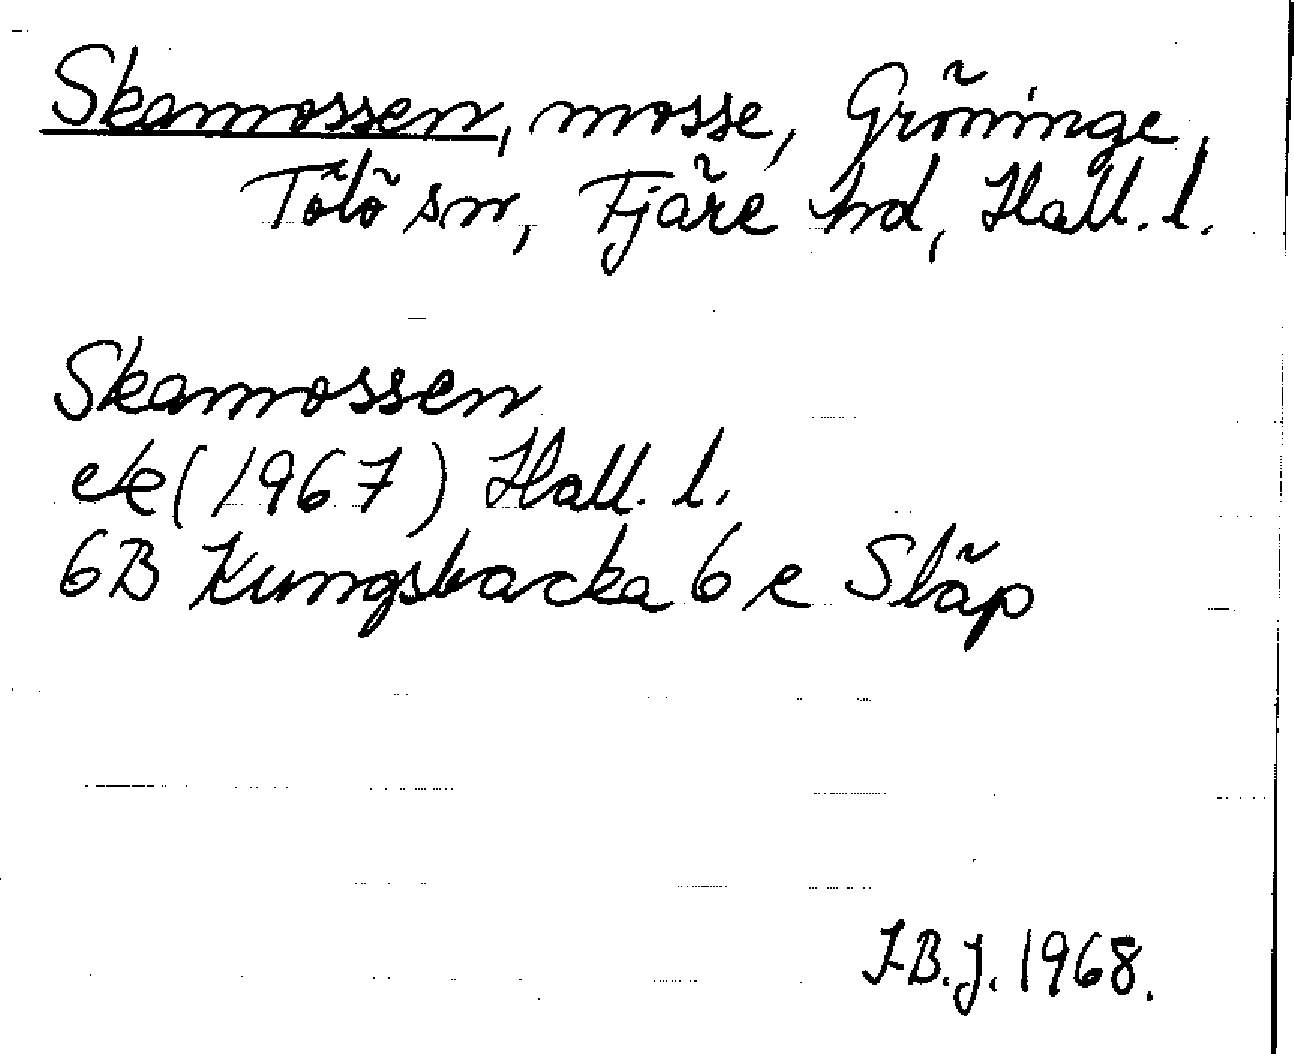 Skamossen, mosse, Gröninge,
Tölö sn, Fjäre hd, Hall. l.
Skamossen
e/e (1967) Hall. l.
6B Kungsbacka 6 e Släp
I-B.J. 1968.